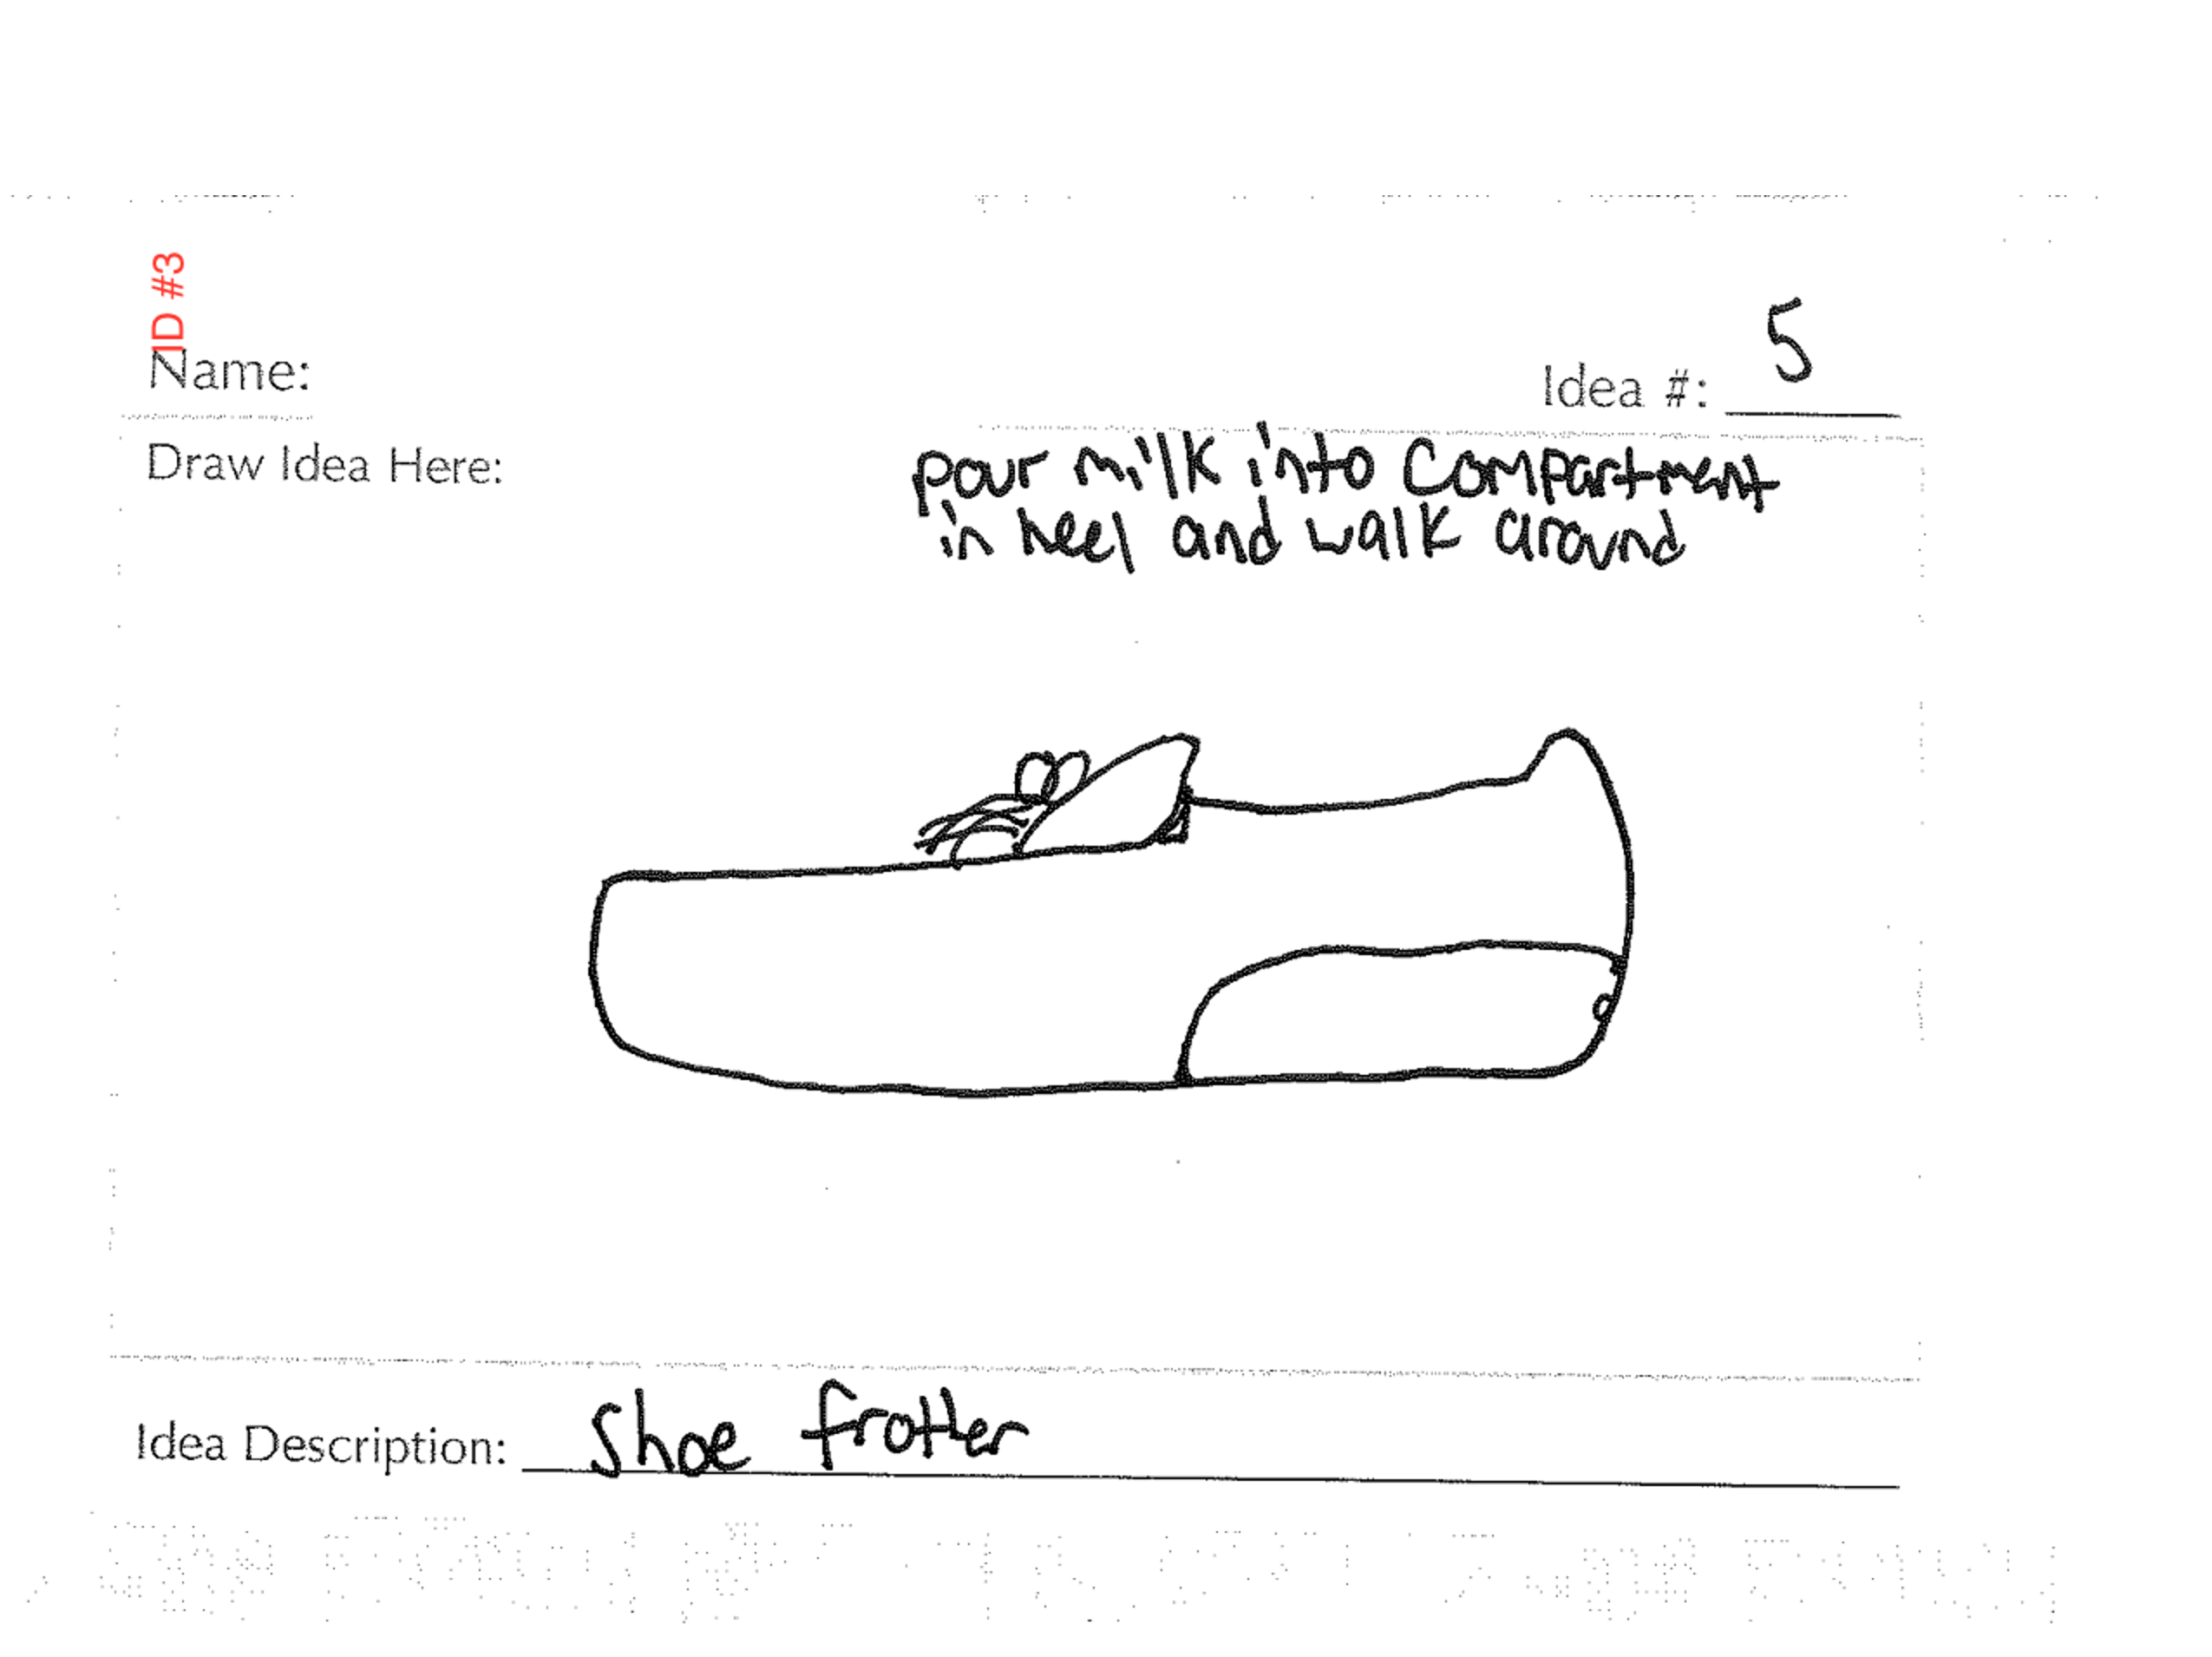 ID #3
Name:
Idea #: 5
Draw Idea Here:
pour milk into compartment
in heel and walk around
Idea Description: Shoe frotter